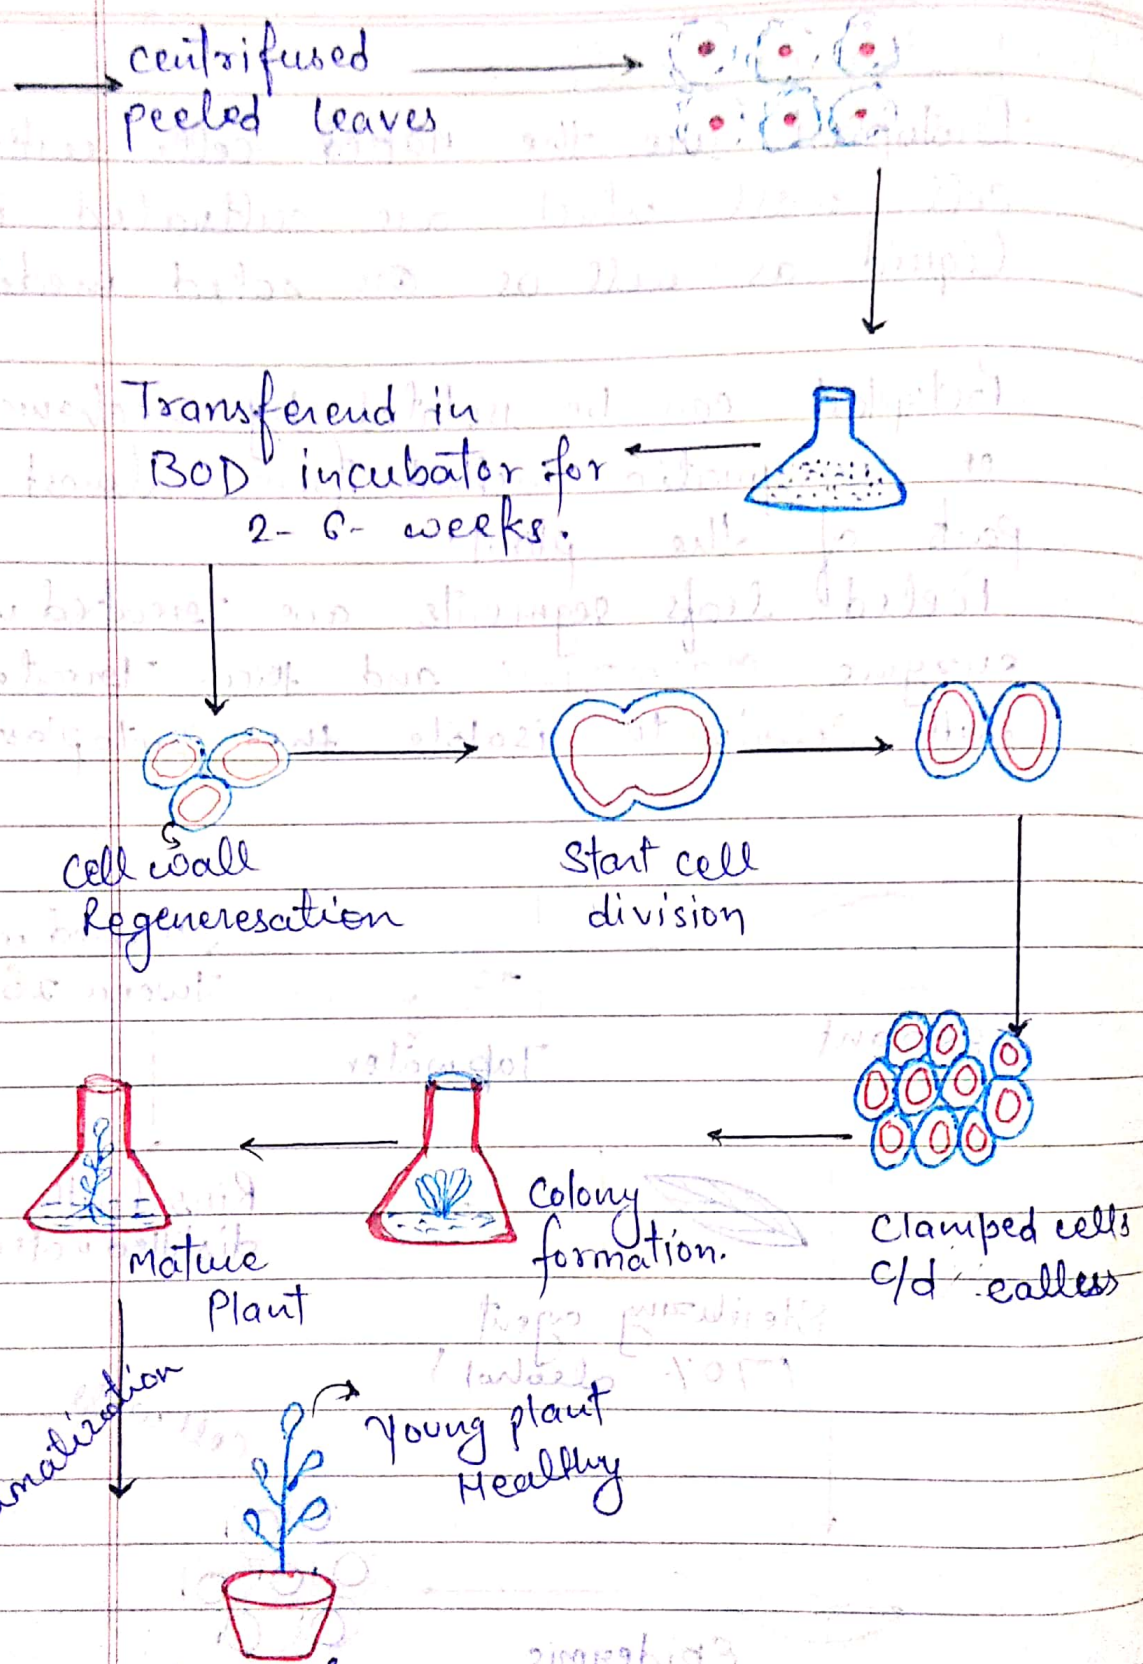 centrifused
peeled leaves
Transferend in
BOD incubator for
2- 6- weeks.
Cell wall
Regeneresation
Start cell
division
Clamped cells
c/d callus
Colony
formation.
Mature
Plant
Young plant
Healthy